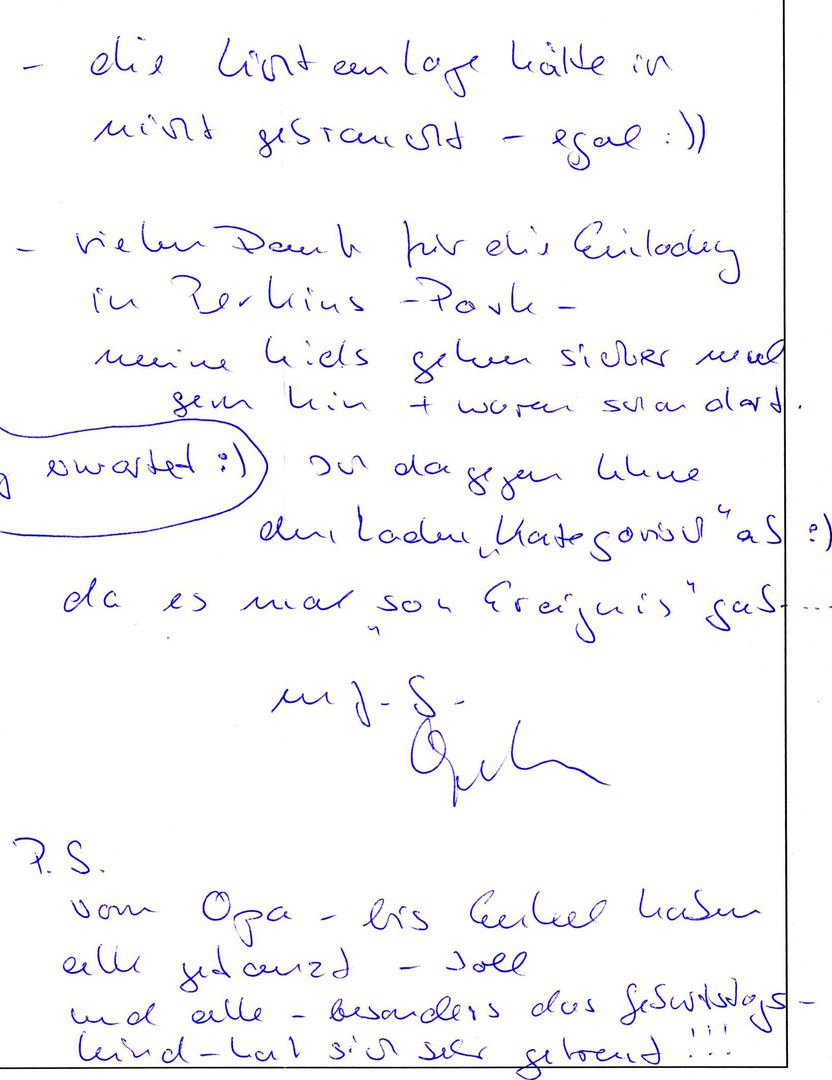 - die Lichtanlage hätte ich
nicht gebraucht - egal :))
- vielen Dank für die Einladung
in Perkins - Park -
meine Kids gehen sicher mal
gern hin + waren schon dort.
erwartet :) ich dagegen lehne
den Laden „kategorisch" ab :)
da es mal „son Ereignis" gab - ...
m f. G.
P.S.
vom Opa - bis Enkel haben
alle getanzt - toll
und alle - besonders das Geburtstags-
kind - hat sich sehr gefreut !!!